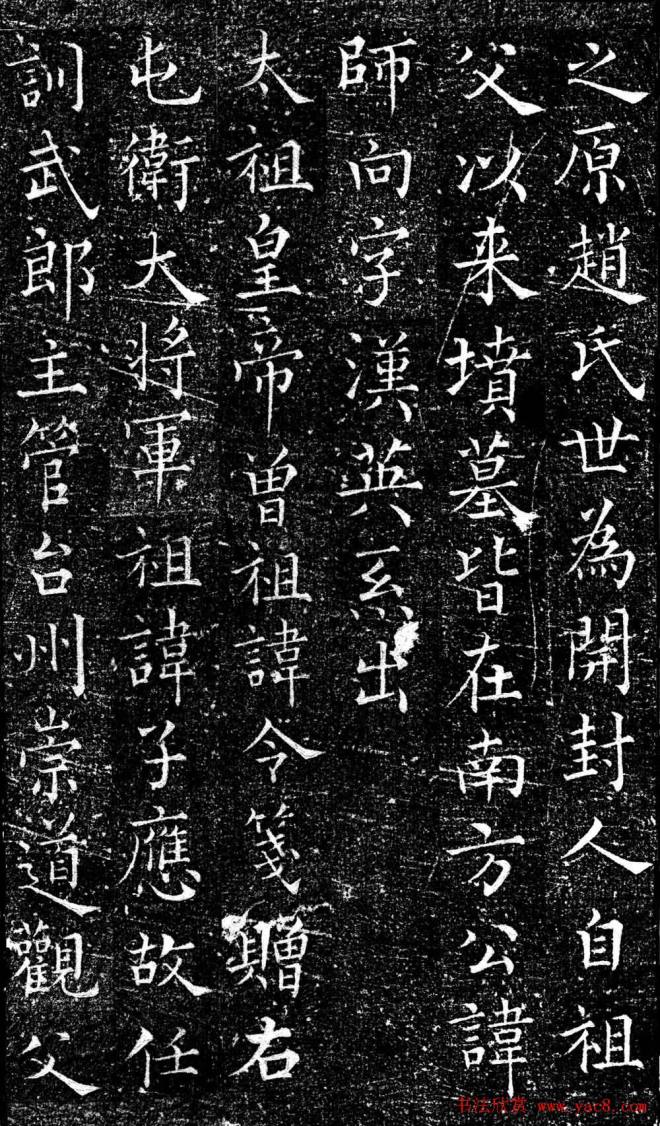 之原趙氏世為開封人自祖
父以来墳墓皆在南方公諱
師向字漢英系出
太祖皇帝曾祖諱令箋贈右
屯衛大將軍祖諱子應故任
訓武郎主管台州崇道觀父
书法欣赏 www.yac8.com